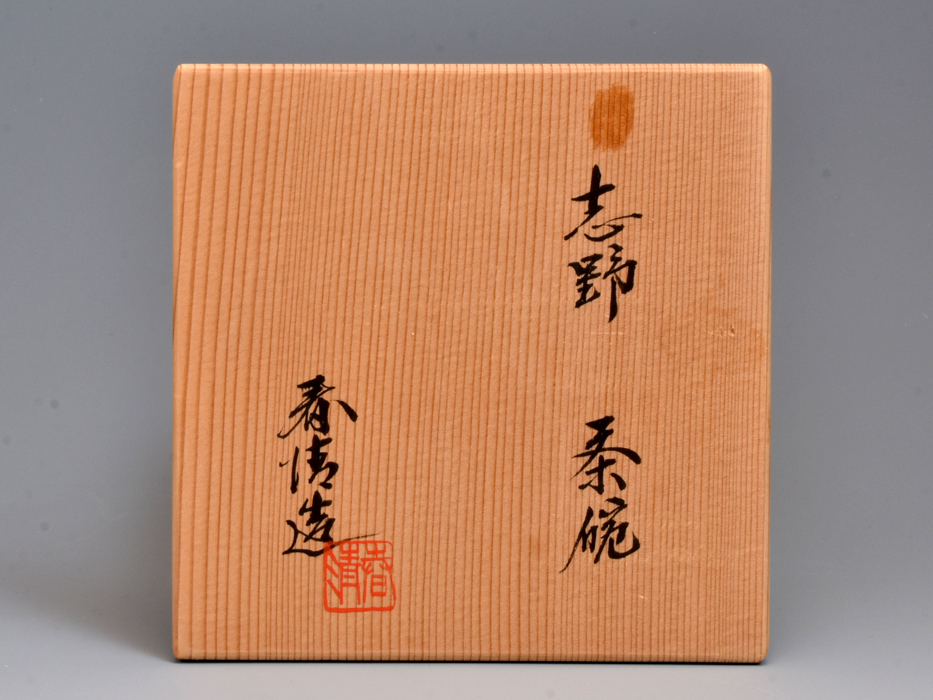 志野 茶碗
春清造
春清